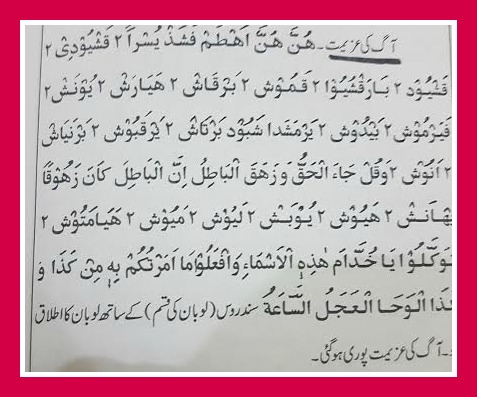 آگ کی عزیمت۔ هُنَّ هُنَّ اَهْطَمْ فَشَذْ يُسْراً ۲ قَشْيُوْدِىْ ۲
قَشْيُوْد ۲ بَارَقْشْيُوْا ۲ قَمُوْش ۲ بَرْقَاش ۲ هَيَارَش ۲ يُوْنَش ۲
قَيَرْمُوْش ۲ يَيْدُوْش ۲ يَرْمَشَدا شَبُوْد بَرْتَاش ۲ يَرْقَبُوْش ۲ بَرْنَيَاش
۲ اَنُوْش ۲ وَقُلْ جَاءَ الْحَقُّ وَزَهَقَ الْبَاطِلُ اِنَّ الْبَاطِلَ كَانَ زَهُوْقًا
يَهَانَش ۲ هَيُوْش ۲ يُوْبَش ۲ لَيُوْش ۲ مَيُوْش ۲ هَيَامَتُوْش ۲
تَوَكَّلُوْا يَا خُدَّام هٰذِهِ الْاَسْمَاءِ وَافْعَلُوْا مَا اَمَرْتُكُمْ بِهٖ مِنْ كَذَا وَ
كَذَا الْوَحَا الْعَجَلُ السَّاعَةُ سندروس (لوبان کی قسم) کے ساتھ لوبان کا اطلاق
۔ آگ کی عزیمت پوری ہوگئی۔